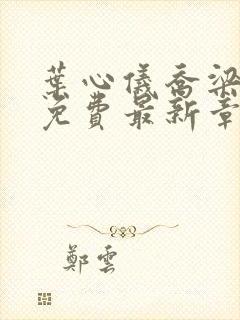 葉心儀喬梁
免費最新章
鄭雲